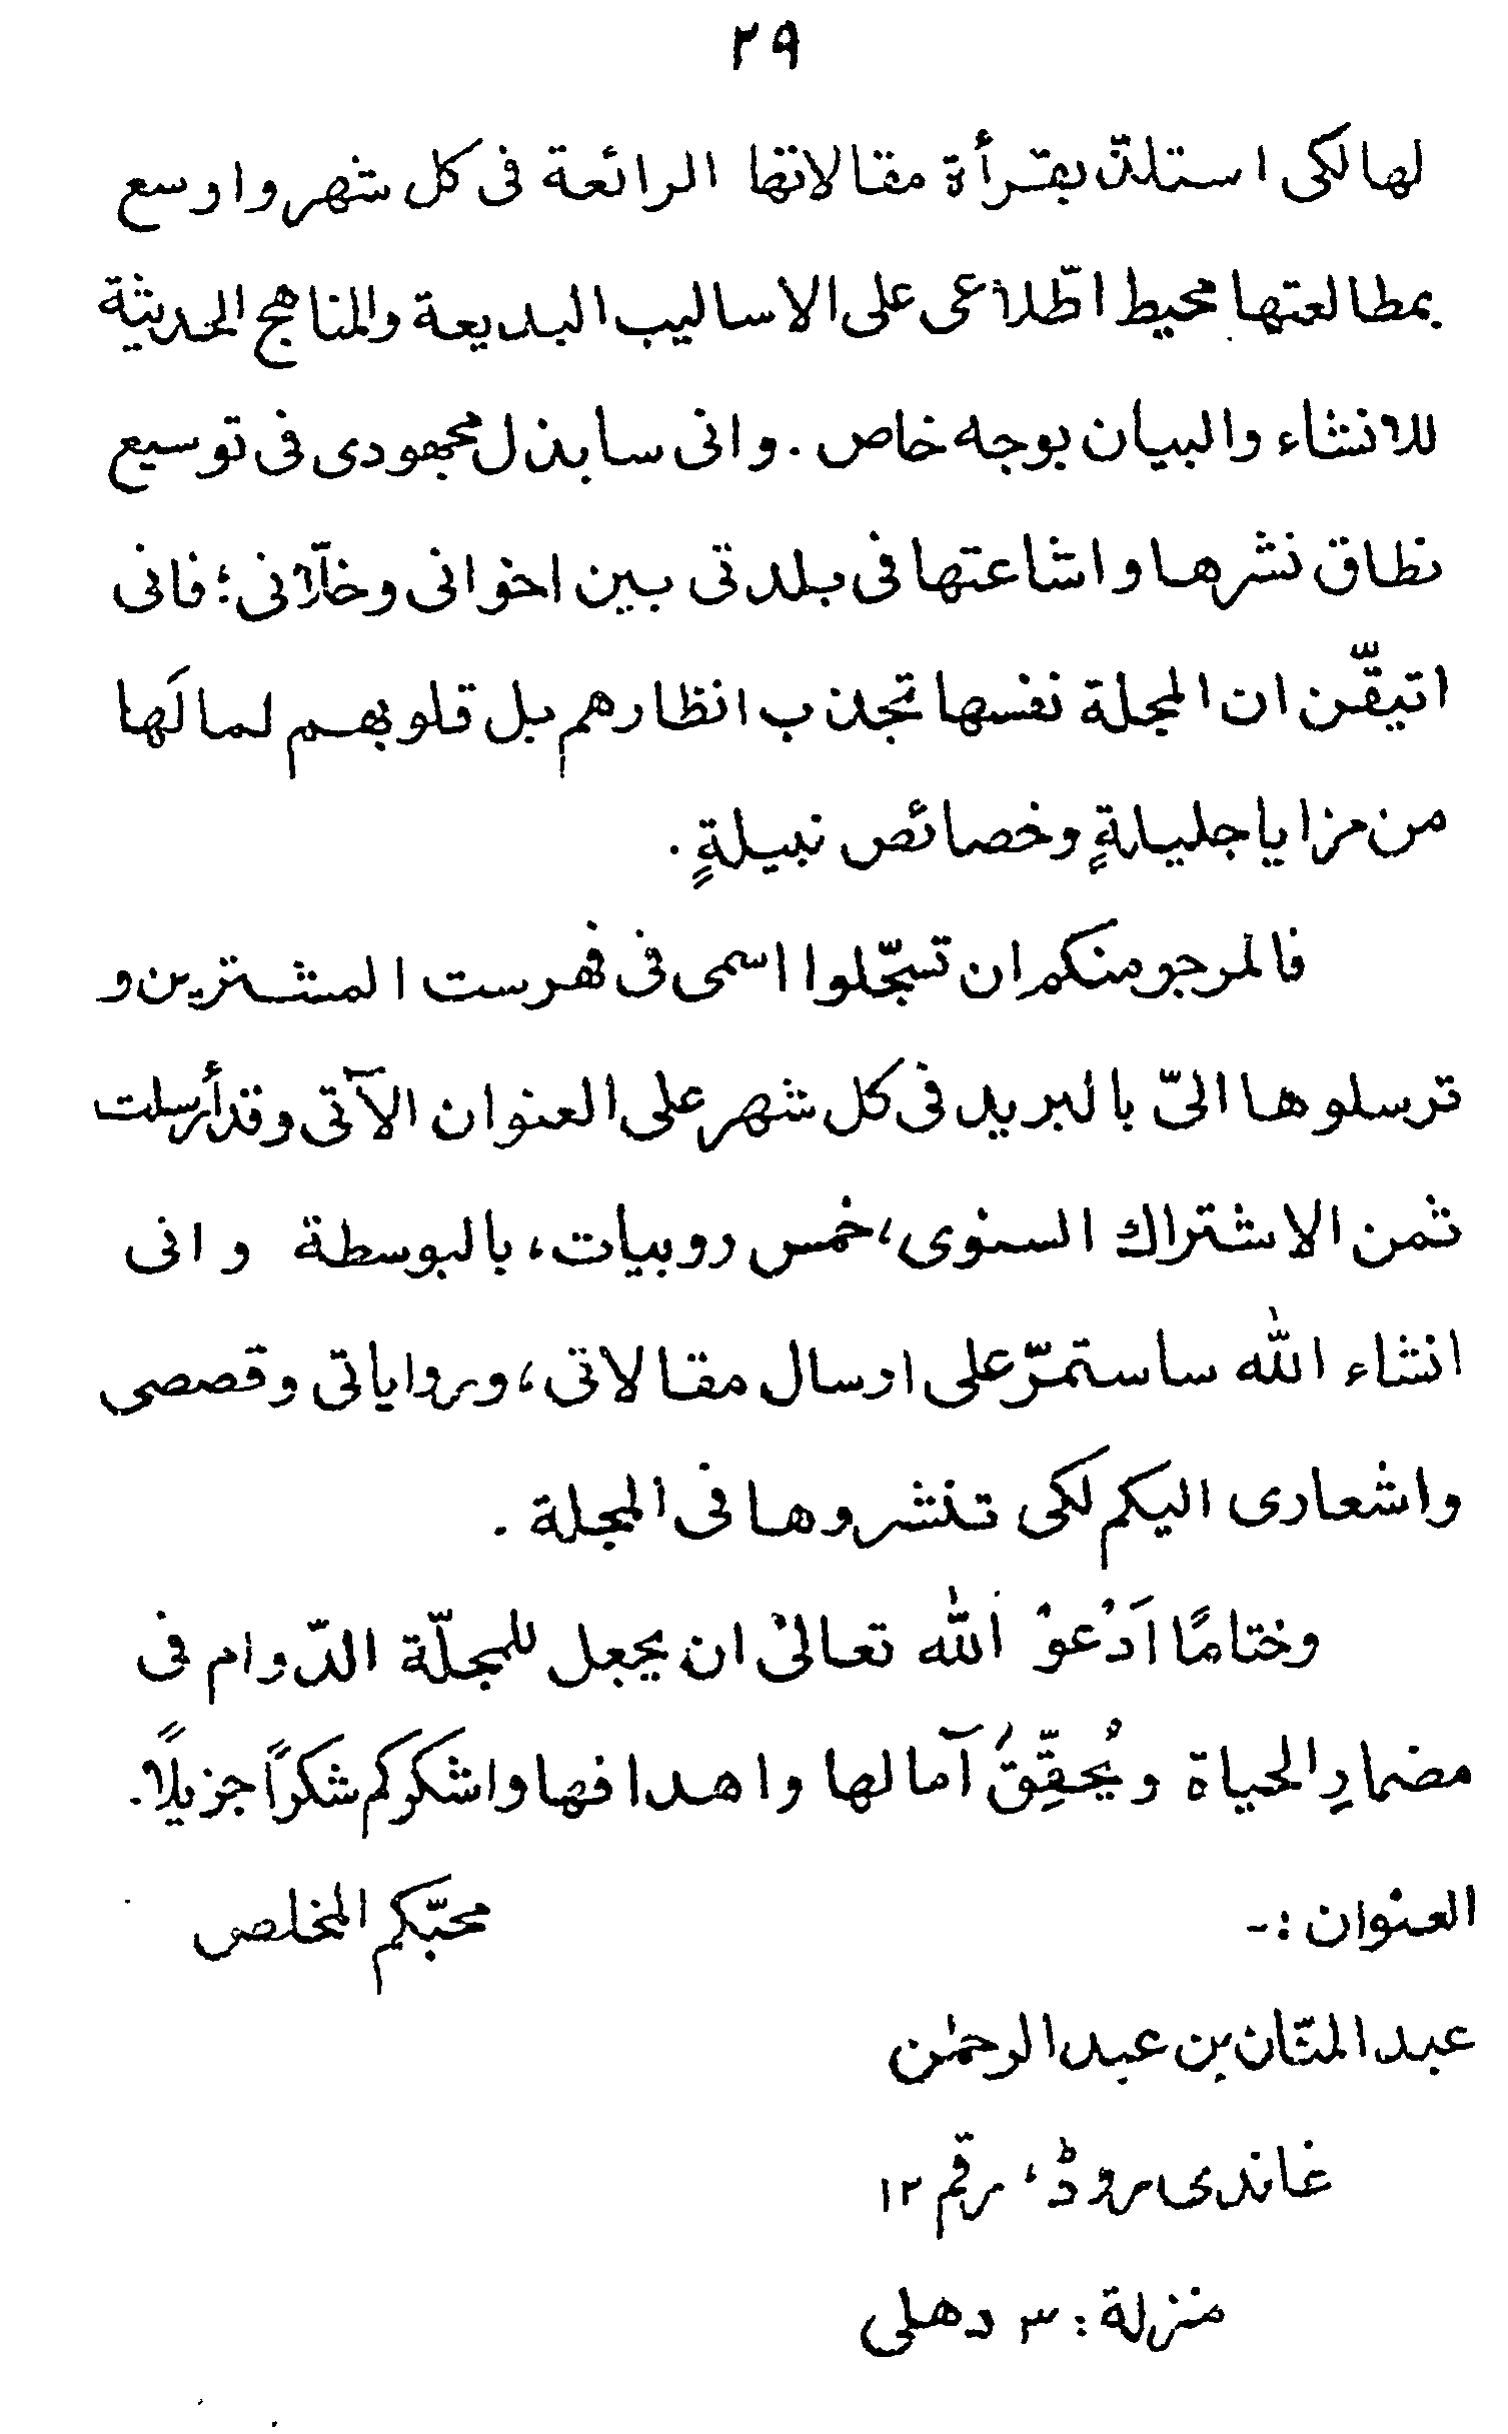 ٢٩
لها لكى استلذّ بقرأة مقالاتها الرائعة فى كل شهر واوسع
بمطالعتها محيط اطّلاعى على الاساليب البديعة والمناهج الحديثة
للانشاء والبيان بوجه خاص . وانى سابذل مجهودى فى توسيع
نطاق نشرها واشاعتها فى بلدتى بين اخوانى وخلّانى؛ فانى
اتيقّن ان المجلة نفسها تجذب انظارهم بل قلوبهم لما لَها
من مزايا جليلةٍ وخصائص نبيلةٍ .
فالمرجو منكم ان تسجّلوا اسمى فى فهرست المشترين و
ترسلوها الىّ بالبريد فى كل شهر على العنوان الآتى وقد أرسلت
ثمن الاشتراك السنوى، خمس روبيات، بالبوسطة وانى
انشاء الله ساستمرّ على ارسال مقالاتى، ورواياتى وقصصى
واشعارى اليكم لكى تنشروها فى المجلة .
وختامًا اَدْعوْ الله تعالىٰ ان يجعل للمجلّة الدّوام فى
مضمارِ الحياة ويُحقِّقَ آمالها واهدافها واشكركم شكرًا جزيلًا.
العنوان :-
محبّكم المخلص
عبد المنّان بن عبد الرحمٰن
غاندى روڈ، رقم ١٢
منزلة: ٣ دهلى